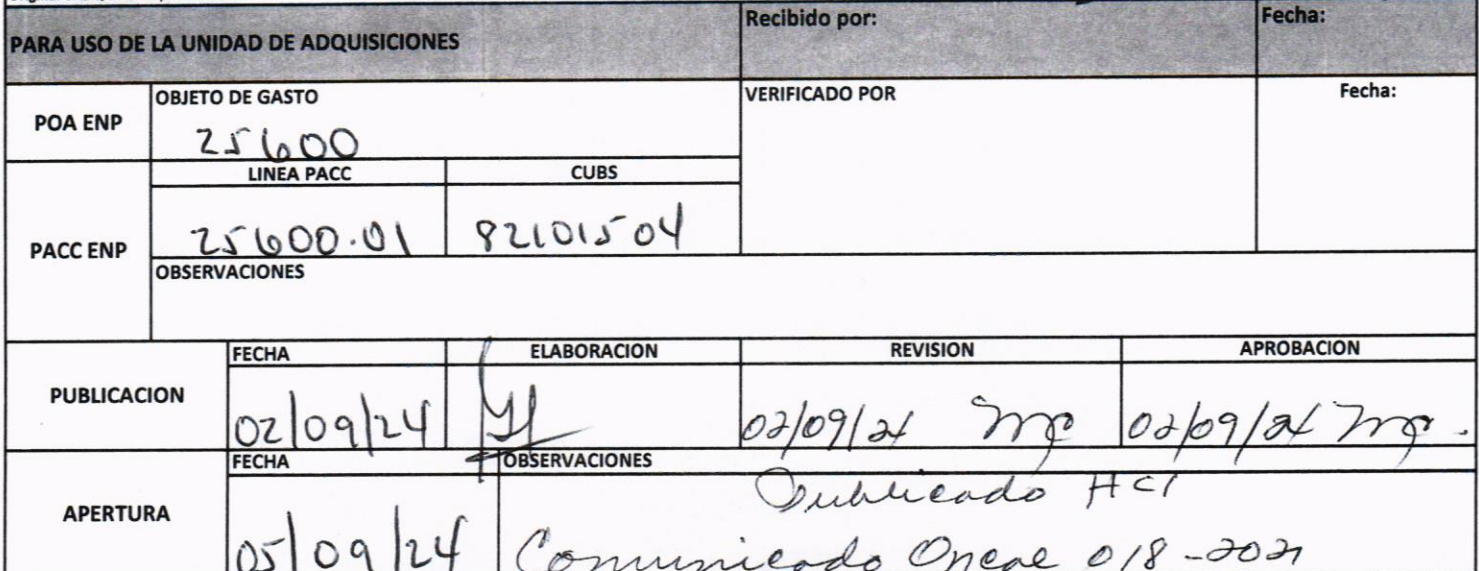 PARA USO DE LA UNIDAD DE ADQUISICIONES
Recibido por:
Fecha:
POA ENP
OBJETO DE GASTO
25600
VERIFICADO POR
Fecha:
PACC ENP
LINEA PACC
CUBS
25600.01
82101504
OBSERVACIONES
PUBLICACION
FECHA
ELABORACION
REVISION
APROBACION
02/09/24
02/09/24
02/09/24
APERTURA
FECHA
OBSERVACIONES
05/09/24
Publicado HC1
Comunicado Oncae 018-2021